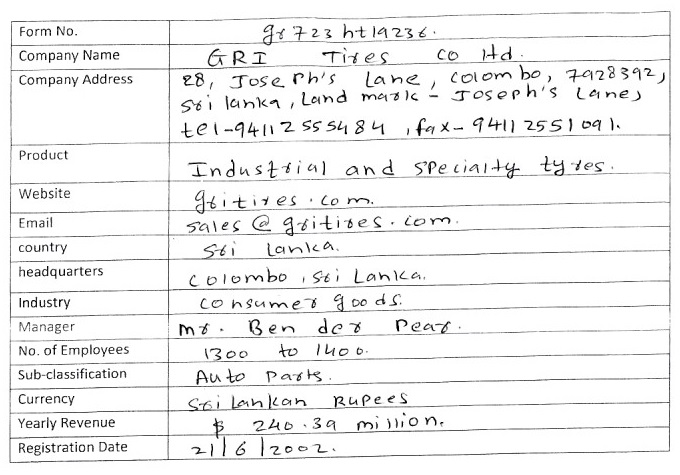 Form No. gr723ht19236.
Company Name GRI Tires co ltd.
Company Address 28, Joseph's Lane, colombo, 7928392,
sri lanka, Land mark - Joseph's Lane,
tel-94112555484, fax-94112551091.
Product Industrial and specialty tyres.
Website gritires.com.
Email sales@gritires.com.
country Sri Lanka.
headquarters colombo, Sri Lanka.
Industry consumer goods.
Manager mr. Ben der Pear.
No. of Employees 1300 to 1400.
Sub-classification Auto parts.
Currency Sri Lankan Rupees
Yearly Revenue $ 240.39 million.
Registration Date 21/6/2002.